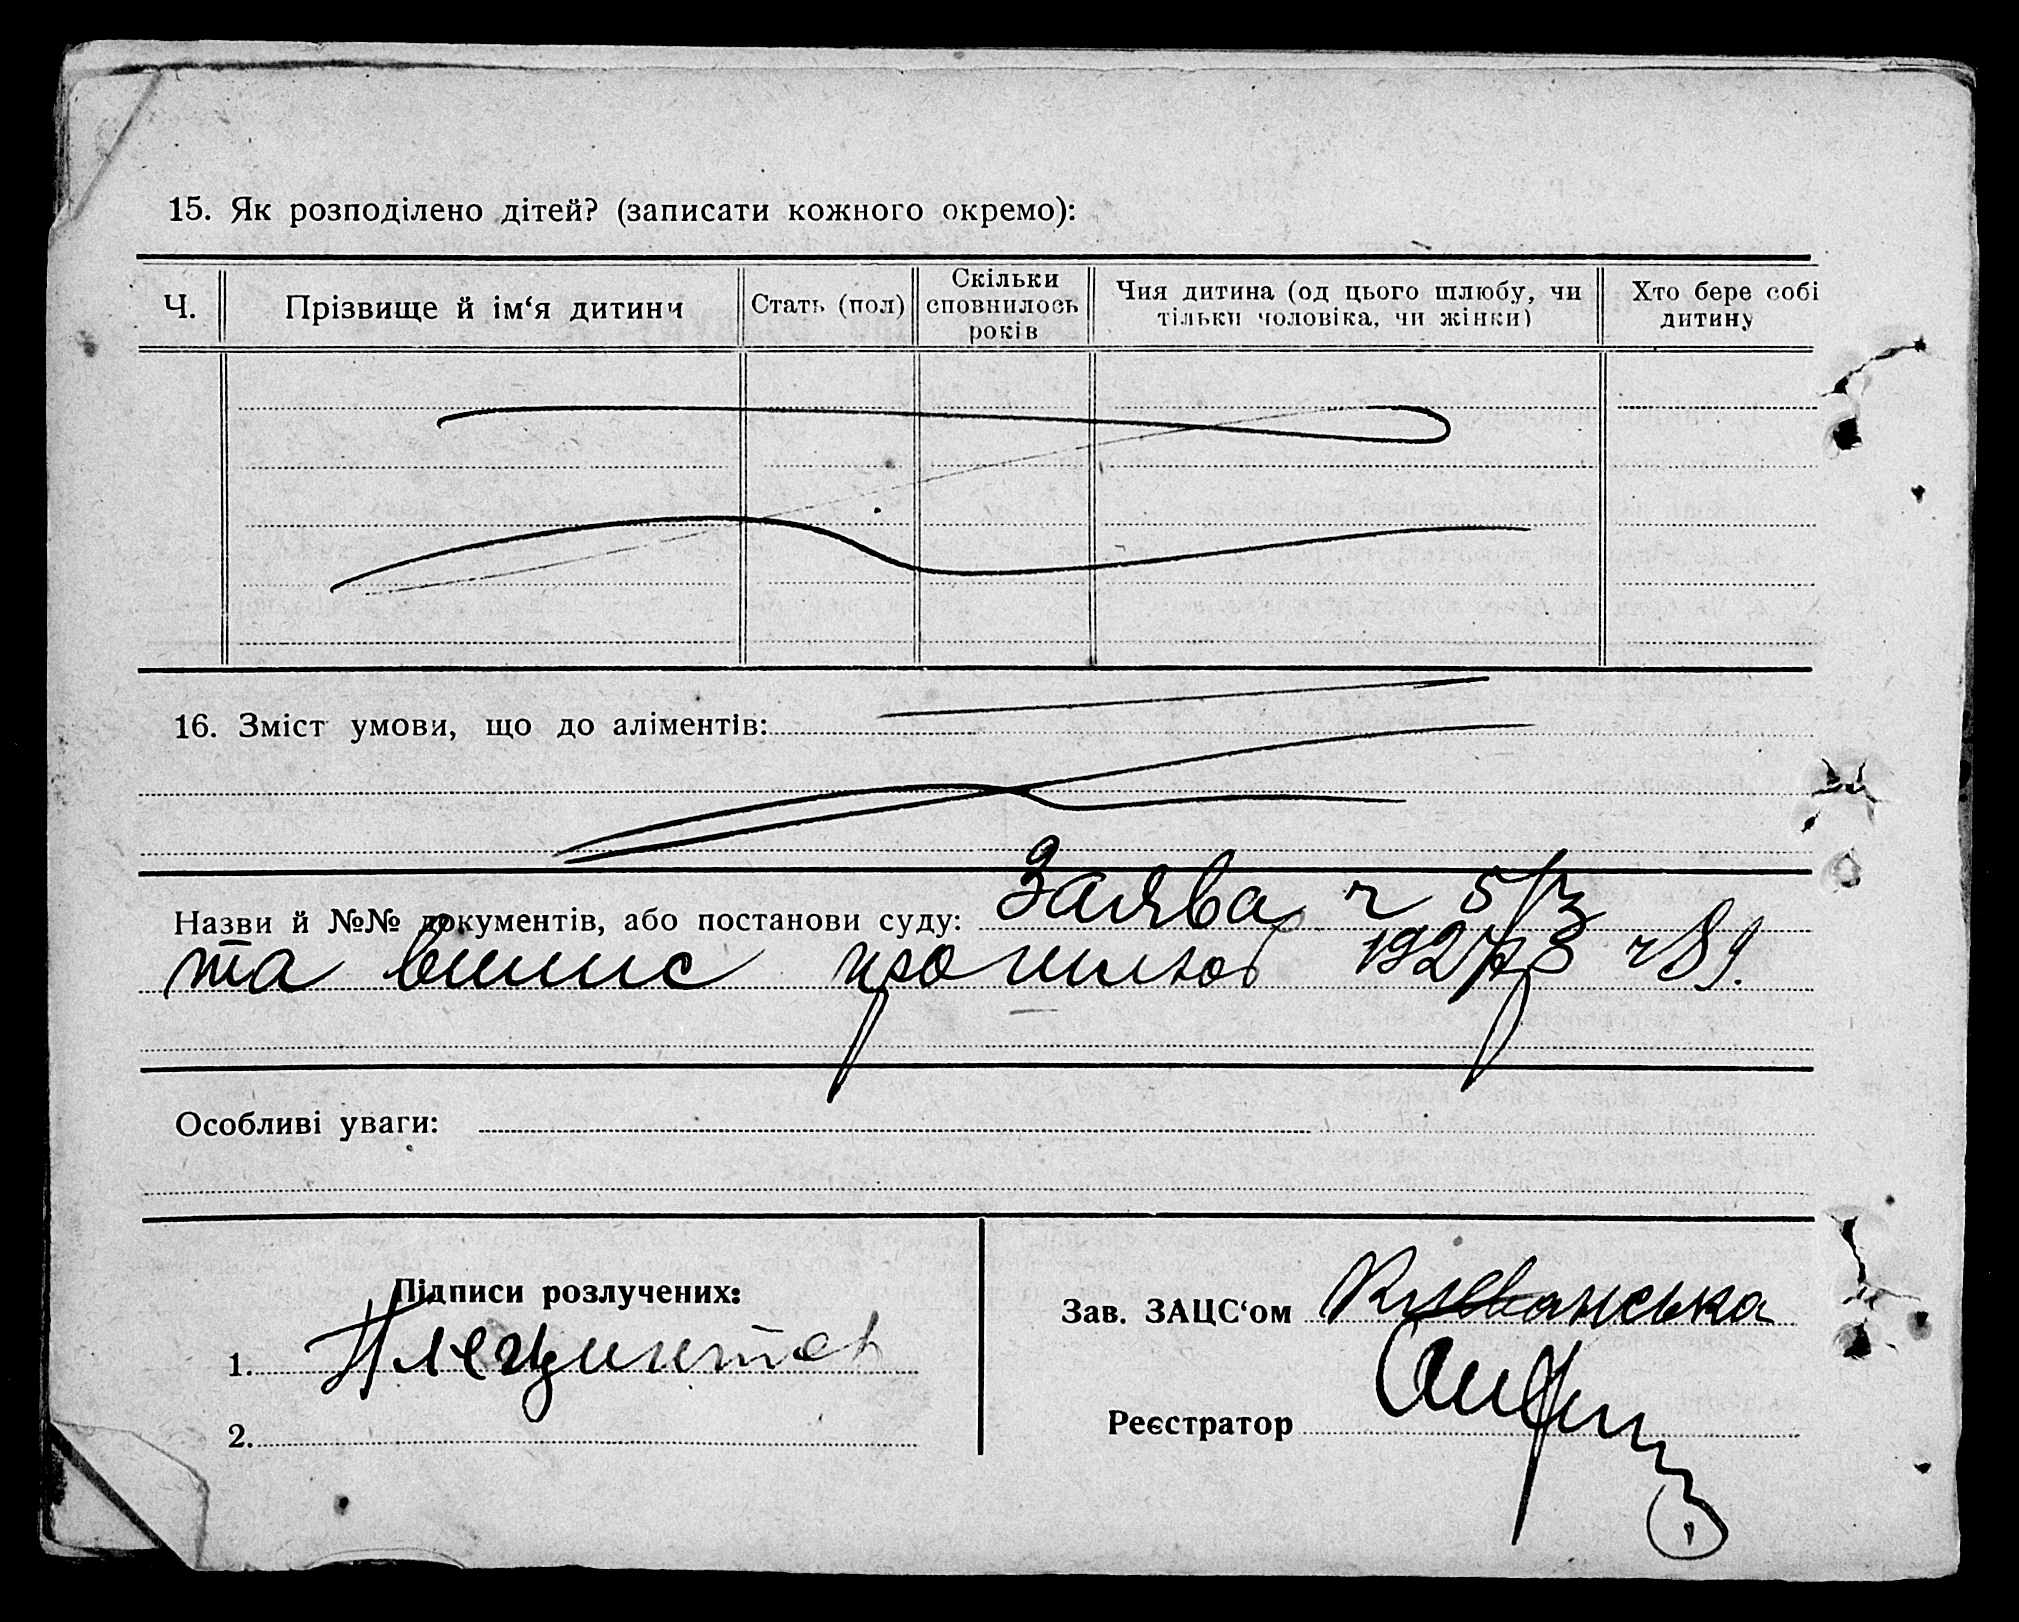 15. Як розподілено дітей? (записати кожного окремо):
Ч. Прізвище й ім‘я дитини Стать (пол) Скільки сповнилось років Чия дитина (од цього шлюбу, чи тільки чоловіка, чи жінки) Хто бере собі дитину
16. Зміст умови, що до аліментів:
Назви й №№ документів, або постанови суду: Заява ч 5/3
та випис про шлюб 1927 р ч 89.
Особливі уваги:
Підписи розлучених:
1.
2.
Зав. ЗАЦС‘ом
Реєстратор